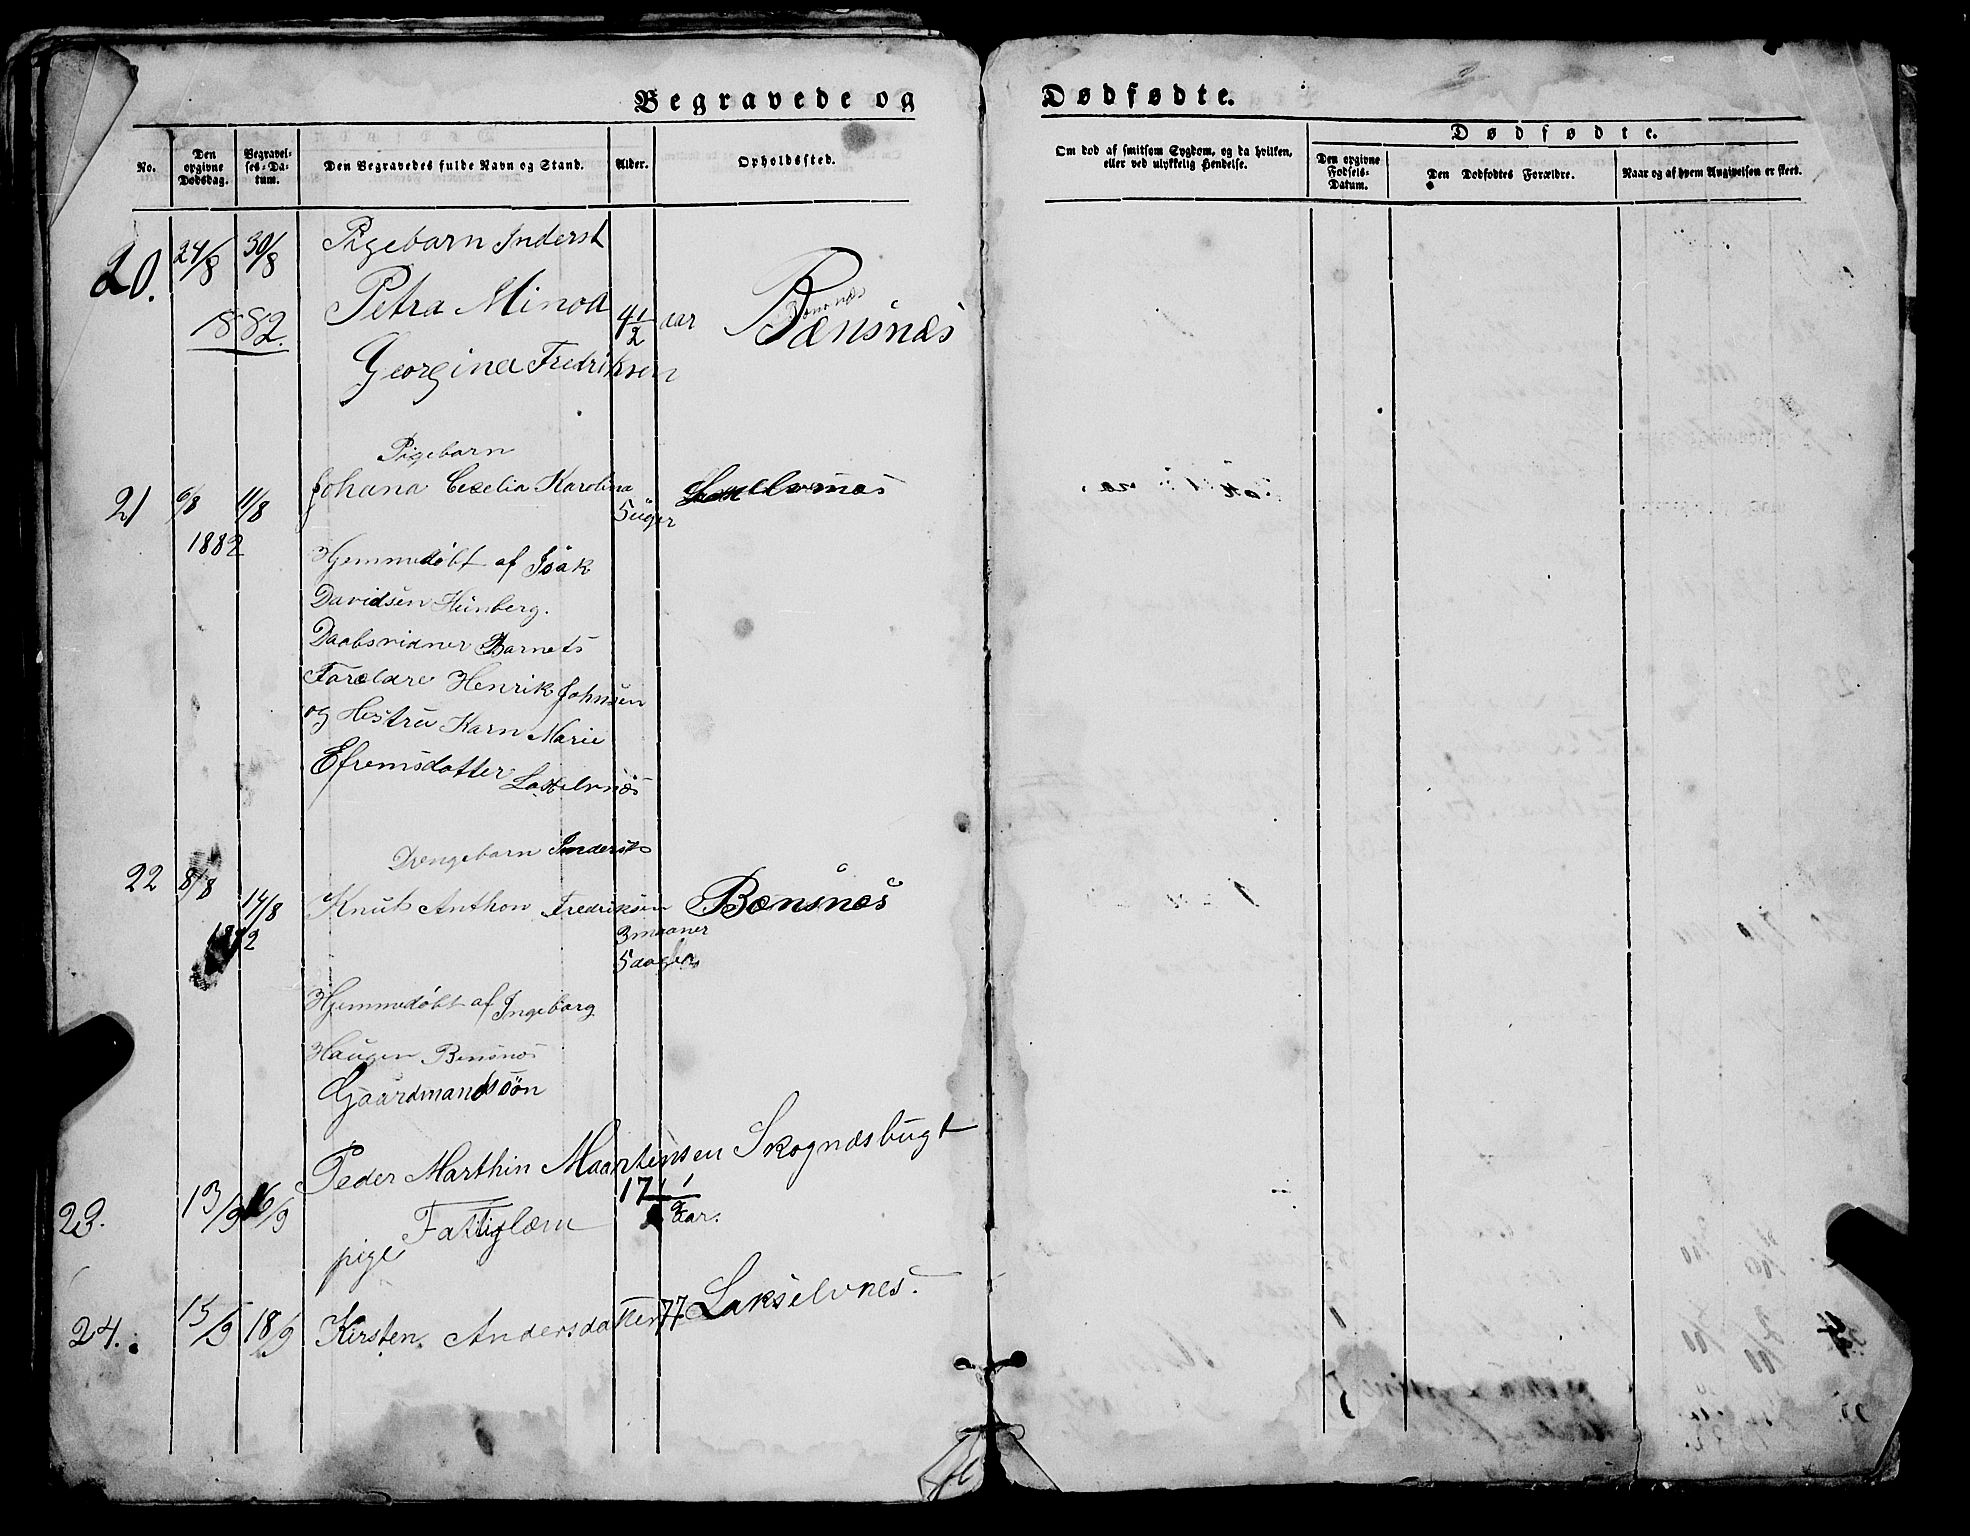 Begravede og
Dødfødte.
No.
Den opgivne Dødsdag.
Begravelses-Datum.
Den Begravedes fulde Navn og Stand.
Alder.
Opholdssted.
Om død af smitsom Sygdom, og da hvilken, eller ved ulykkelig Hendelse.
Dødfødte.
Den opgivne Fødsels-Datum.
Den Dødfødtes Forældre.
Naar og af hvem Angivelsen er skeet.
20. 24/8 30/8 Pigebarn Inderst
1882. Petra Minoa 4 1/2 aar Bænsnæs
Georgina Fredriksen
Pigebarn
21 6/8 11/8 Johana Cecelia Karolina 5 uger
1882 Hjemmedøbt af Isak
Davidsen
Daabsvidner Barnets
Forældre Henrik Johnsen
og Hustru Karn Marie
Efremsdatter Lakselvnæs
Drengebarn Inderst
22 8/8 14/8 Knut Anthon Fredriksen Bænsnæs
1882 3 maaner
5 dage
Hjemmedøbt af Ingeborg
Haugen Bensnes
Gaardmandssøn
Peder Marthin Maartensen Skognæsbugt
23. 13/9 16/9 17 1/2 aar.
Fattiglæm
pige
24. 15/9 18/9 Kirsten Andersdatter 77 Lakselvnes.